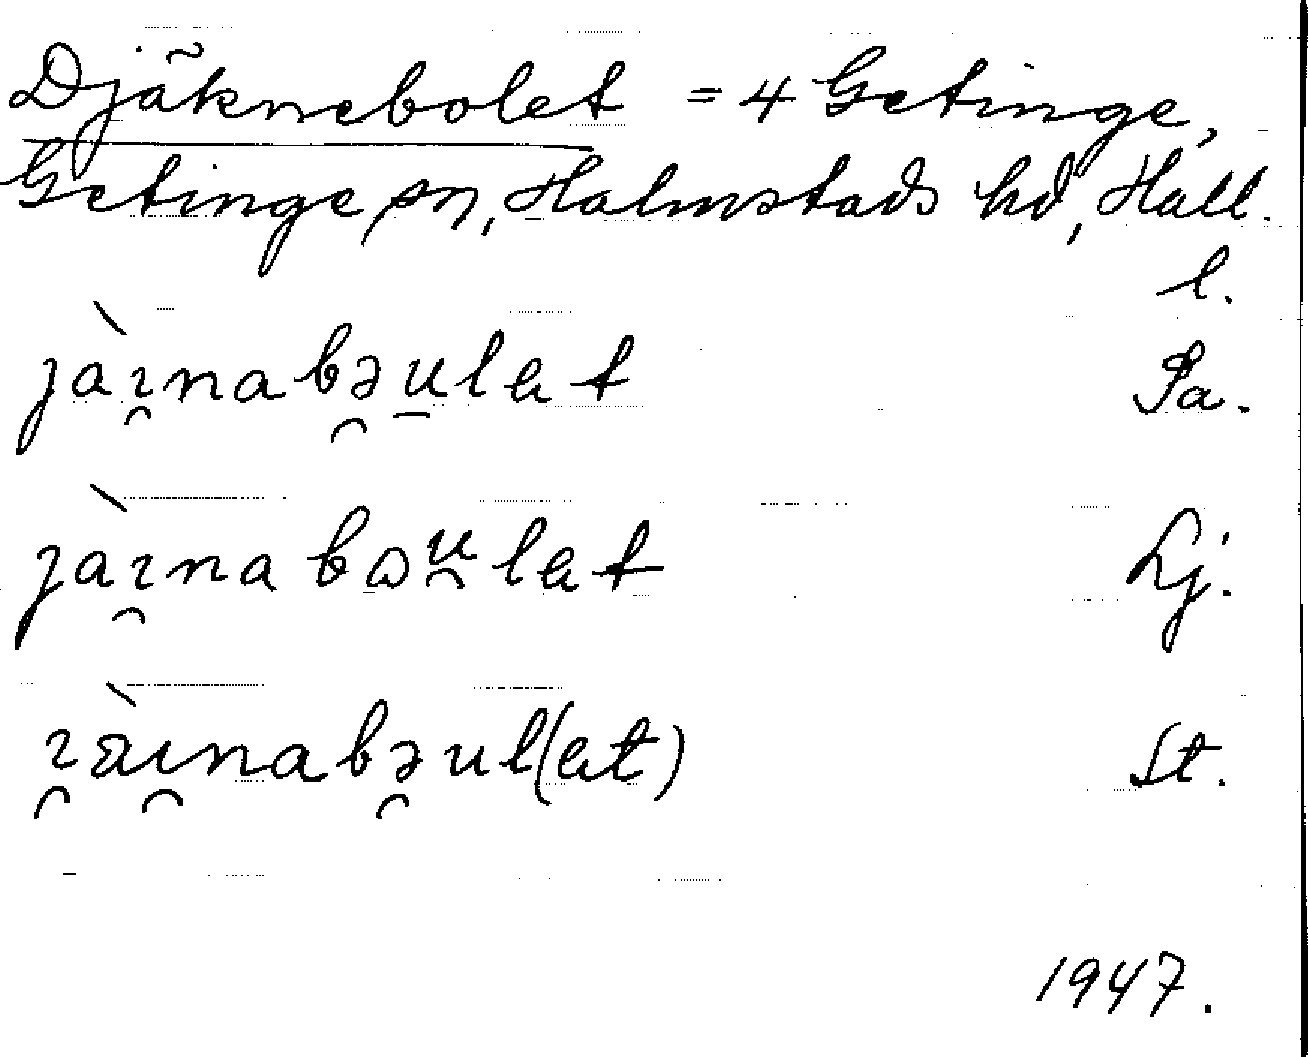 Djäknebolet = 4 Getinge,
Getinge sn, Halmstads hd, Hall.
l.
jàı̯nabə̯u̲let Pa.
jàı̯nabωu̯let Lj.
ı̯àı̯nabə̯ul(et) St.
1947.